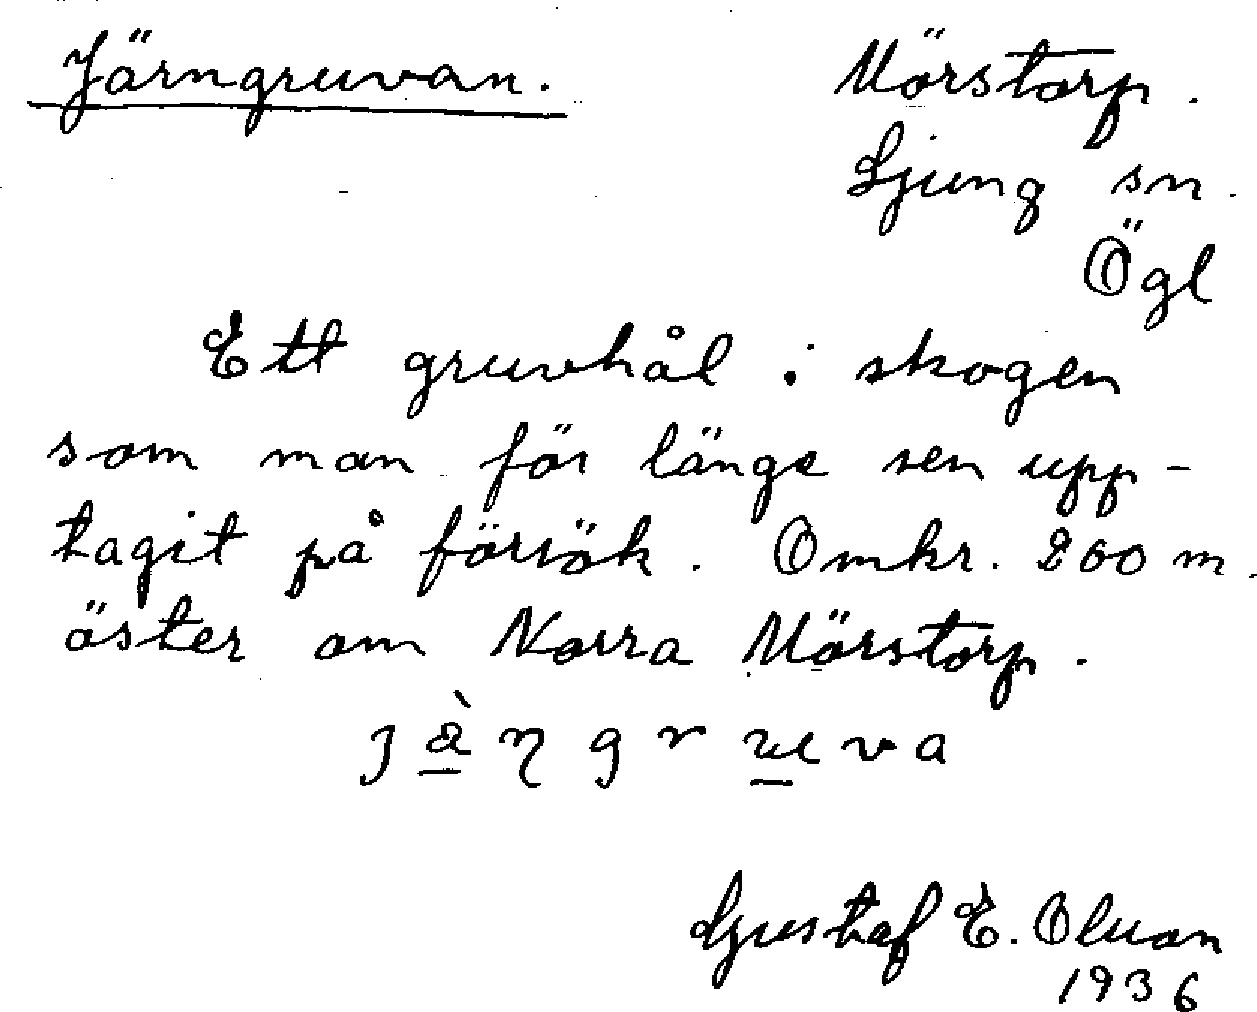 Järngruvan.
Mörstorp.
Ljung sn.
Ögl
Ett gruvhål i skogen
som man för länge sen upp-
tagit på försök. Omkr. 200 m.
öster om Norra Mörstorp.
Gustaf E. Olson
1936